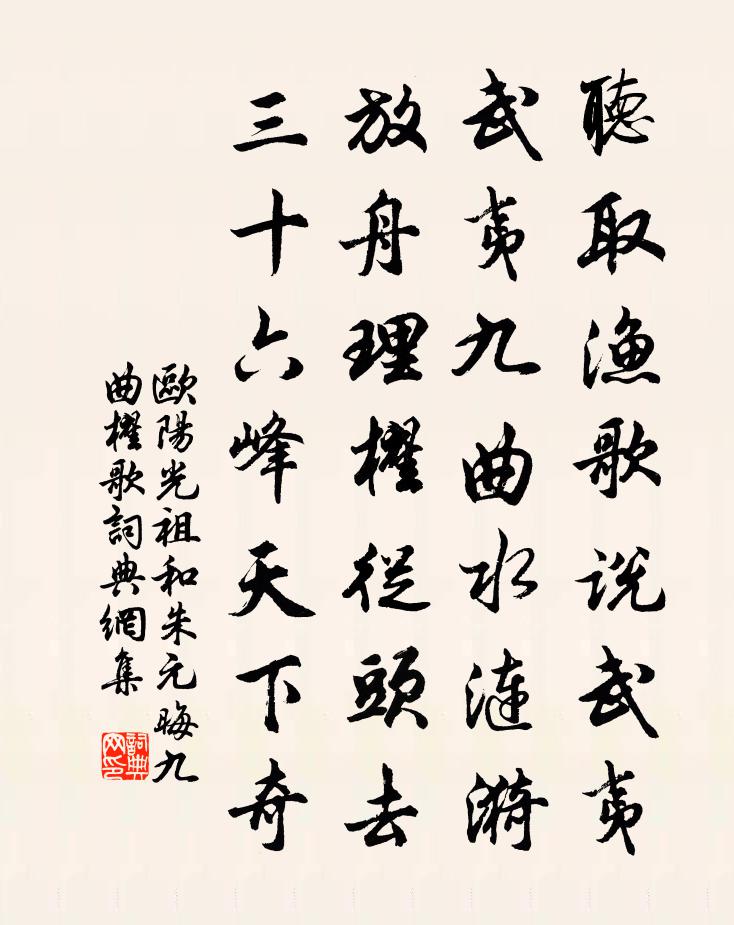 聽取漁歌説武夷
武夷九曲水漣漪
放舟理櫂從頭去
三十六峰天下奇
歐陽光祖和朱元晦九
曲櫂歌詞典網集
詞典
网印